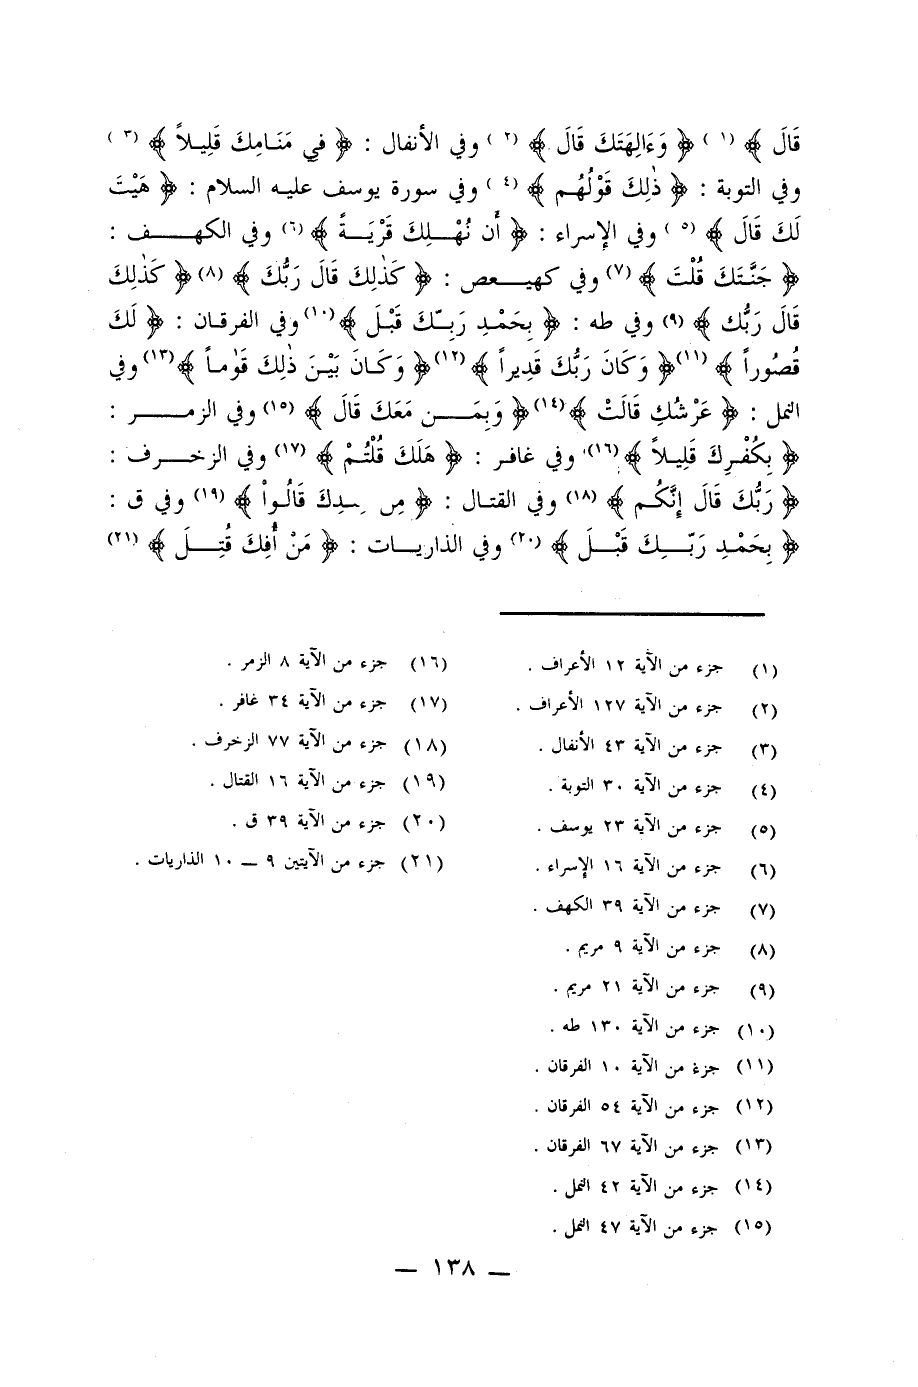 قَالَ ﴾ (١) ﴿ وَءَالِهَتَكَ قَالَ ﴾ (٢) وفي الأنفال : ﴿ في مَنَامِكَ قَلِيلاً ﴾ (٣)
وفي التوبة : ﴿ ذٰلِكَ قَوْلُهُم ﴾ (٤) وفي سورة يوسف عليه السلام : ﴿ هَيْتَ
لَكَ قَالَ ﴾ (٥) وفي الإسراء : ﴿ أَن نُهْلِكَ قَرْيَةً ﴾ (٦) وفي الكهف :
﴿ جَنَّتَكَ قُلْتَ ﴾ (٧) وفي كهيعص : ﴿ كَذٰلِكَ قَالَ رَبُّكَ ﴾ (٨) ﴿ كَذٰلِكَ
قَالَ رَبُّك ﴾ (٩) وفي طه : ﴿ بِحَمْدِ رَبِّكَ قَبْلَ ﴾ (١٠) وفي الفرقان : ﴿ لَكَ
قُصُوراً ﴾ (١١) ﴿ وَكَانَ رَبُّكَ قَدِيراً ﴾ (١٢) ﴿ وَكَانَ بَيْنَ ذٰلِكَ قَوَٰماً ﴾ (١٣) وفي
النمل : ﴿ عَرْشُكِ قَالَتْ ﴾ (١٤) ﴿ وَبِمَن مَعَكَ قَالَ ﴾ (١٥) وفي الزمر :
﴿ بِكُفْرِكَ قَلِيلاً ﴾ (١٦) وفي غافر : ﴿ هَلَكَ قُلْتُمْ ﴾ (١٧) وفي الزخرف :
﴿ رَبُّكَ قَالَ إِنَّكُم ﴾ (١٨) وفي القتال : ﴿ قَالُواْ ﴾ (١٩) وفي ق :
﴿ بِحَمْدِ رَبِّكَ قَبْلَ ﴾ (٢٠) وفي الذاريات : ﴿ مَنْ أُفِكَ قُتِلَ ﴾ (٢١)
(١) جزء من الآية ١٢ الأعراف .
(٢) جزء من الآية ١٢٧ الأعراف .
(٣) جزء من الآية ٤٣ الأنفال .
(٤) جزء من الآية ٣٠ التوبة .
(٥) جزء من الآية ٢٣ يوسف .
(٦) جزء من الآية ١٦ الإسراء .
(٧) جزء من الآية ٣٩ الكهف .
(٨) جزء من الآية ٩ مريم .
(٩) جزء من الآية ٢١ مريم .
(١٠) جزء من الآية ١٣٠ طه .
(١١) جزء من الآية ١٠ الفرقان .
(١٢) جزء من الآية ٥٤ الفرقان .
(١٣) جزء من الآية ٦٧ الفرقان .
(١٤) جزء من الآية ٤٢ النمل .
(١٥) جزء من الآية ٤٧ النمل .
(١٦) جزء من الآية ٨ الزمر .
(١٧) جزء من الآية ٣٤ غافر .
(١٨) جزء من الآية ٧٧ الزخرف .
(١٩) جزء من الآية ١٦ القتال .
(٢٠) جزء من الآية ٣٩ ق .
(٢١) جزء من الآيتين ٩ — ١٠ الذاريات .
— ١٣٨ —